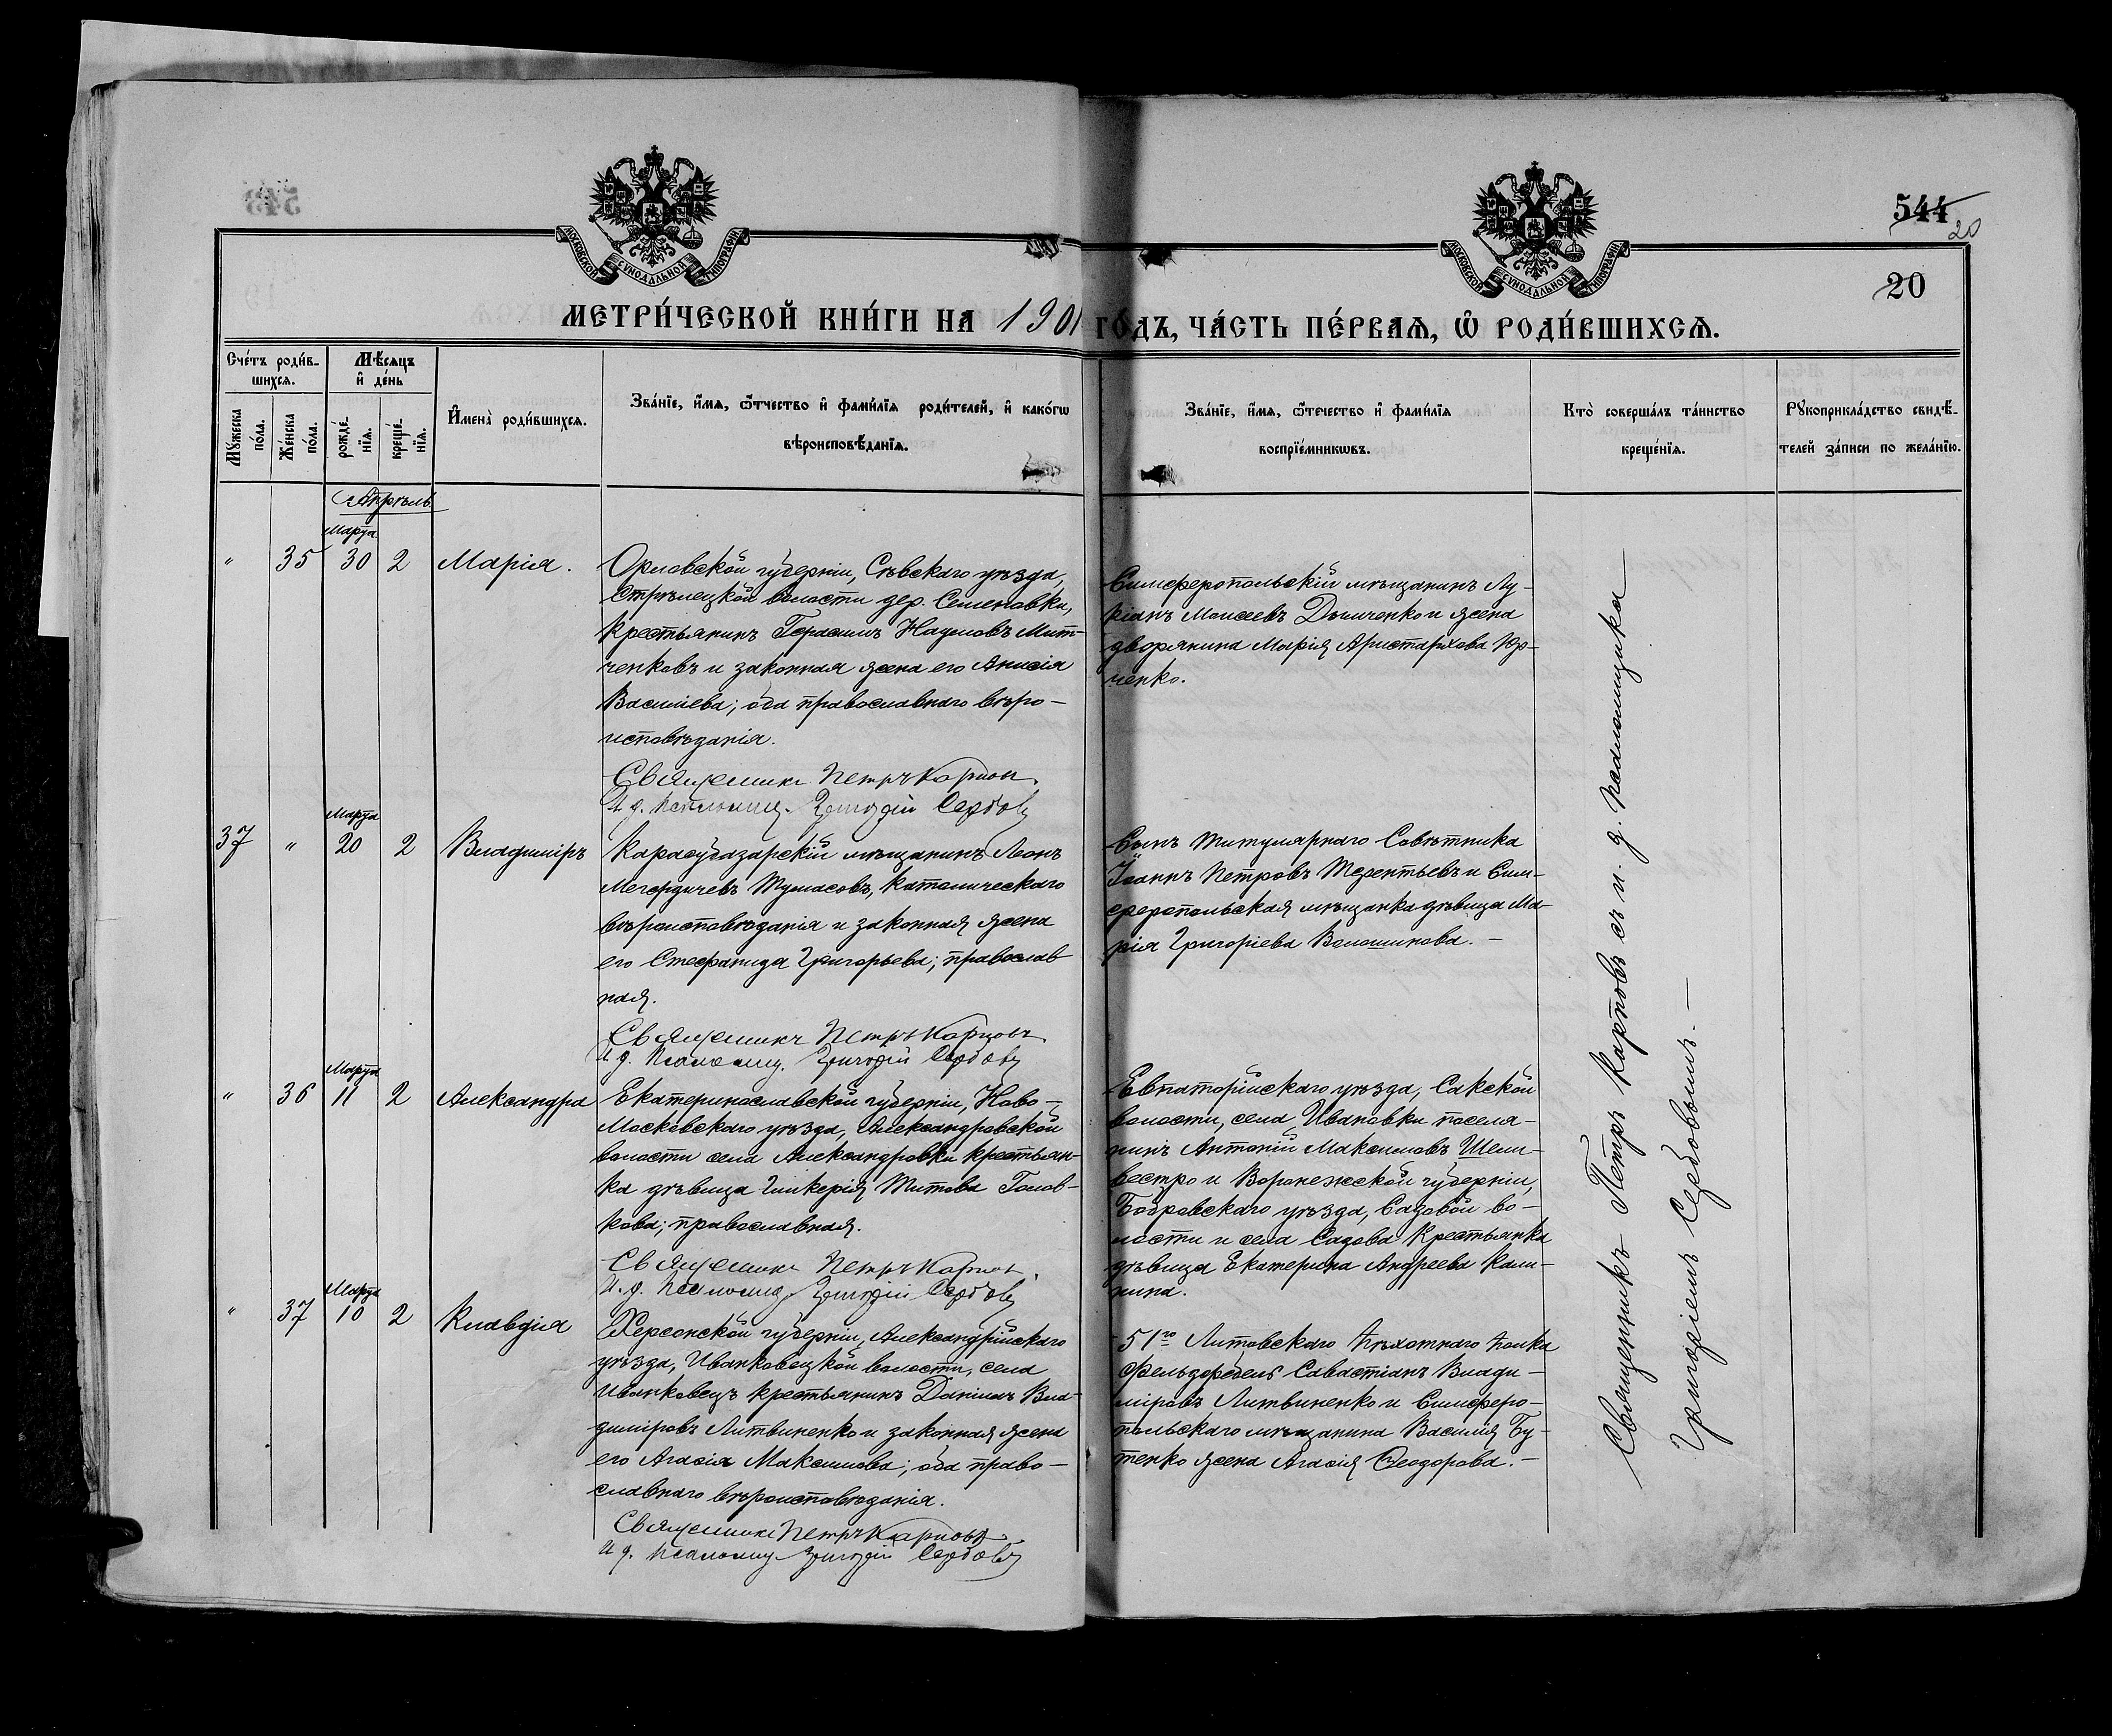 544
20
20
МОСКОВСКОЙ СУНОДАЛЬНОЙ ТИПОГРАФІИ
МОСКОВСКОЙ СУНОДАЛЬНОЙ ТИПОГРАФІИ
МЕТРИ́ЧЕСКОЙ КНИ́ГИ НА 1901 ГО́ДЪ, ЧА́СТЬ ПЕ́РВАѦ, Ѽ РОДИ́ВШИХСѦ.
Сче́тъ роди́в-
шихсѧ.
Мѣ́сяцъ
и҆ де́нь
Мꙋ́жеска
по́ла.
Же́нска
по́ла.
рожде́-
нїѧ.
креще́-
нїѧ.
И҆мена̀ роди́вшихсѧ.
Зва́нїе, и҆́мѧ, ѻ҆́тчество и҆ фами́лїѧ роди́телей, и҆ како́гѡ
вѣроисповѣ́данїѧ.
Зва́нїе, и҆́мѧ, ѻ҆́течество и҆ фами́лїѧ
воспрїе́мникѡвъ.
Кто̀ соверша́лъ та́инство
креще́нїѧ.
Рꙋкоприкла́дство свидѣ́-
телей за́писи по жела́нїю.
Апрѣль
Марта
" 35 30 2 Марія.
Орловской губерніи, Сѣвскаго уѣзда,
Стрѣлецкой волости дер. Семеновки,
крестьянинъ Герасимъ Наумовъ Мит-
ченковъ и законная жена его Анисія
Василіева; оба православнаго вѣро-
исповѣданія.
Священникъ Петръ Карповъ
И. д. псаломщ. Григорій Сербовъ
Симферопольскій мѣщанинъ Лу-
кіанъ Моисеевъ Дымченко и жена
дворянина Марія Аристархова Юр-
ченко.
Марта
37 " 20 2 Владиміръ
Карасубазарскій мѣщанинъ Леонъ
Мегердичевъ Тумасовъ, католическаго
вѣроисповѣданія и законная жена
его Стефанида Григорьева; православ
ная.
Священникъ Петръ Карповъ
И. д. псаломщ. Григорій Сербовъ
Сынъ Титулярнаго Совѣтника
Іоаннъ Петровъ Терентьевъ и Сим-
феропольская мѣщанка дѣвица Ма-
рія Григоріева Волошинова. –
Марта
" 36 11 2 Александра
Екатеринославской губерніи, Ново-
Московскаго уѣзда, Александровской
волости села Александровки крестьян-
ка дѣвица Гликерія Титова Голов-
кова; православная.
Священникъ Петръ Карповъ
И. д. псаломщ. Григорій Сербовъ
Евпаторійскаго уѣзда, Сакской
волости, села Ивановки поселя-
нинъ Антоній Максимовъ Шели-
вестро и Воронежской губерніи,
Бобровскаго уѣзда, Садовой во-
лости и села Садова крестьянка
дѣвица Екатерина Андреева Кали-
нина.
Марта
" 37 10 2 Клавдія
Херсонской губерніи, Александрійскаго
уѣзда, Иванковецкой волости, села
Иванковецъ крестьянинъ Даніилъ Вла-
диміровъ Литвиненко и законная жена
его Агафія Максимова; оба право-
славнаго вѣроисповѣданія.
Священникъ Петръ Карповъ
И. д. псаломщ. Григорій Сербовъ
51го Литовскаго пѣхотнаго полка
Фельдфебель Савастіанъ Влади-
міровъ Литвиненко и Симферо-
польскаго мѣщанина Василія Бу-
тенко жена Агафія Ѳеодорова. –
Священникъ Петръ Карповъ съ и. д. псаломщика
Григоріемъ Сербовымъ. –